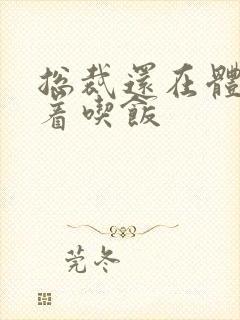 總裁還在體
着喫飯
莞冬